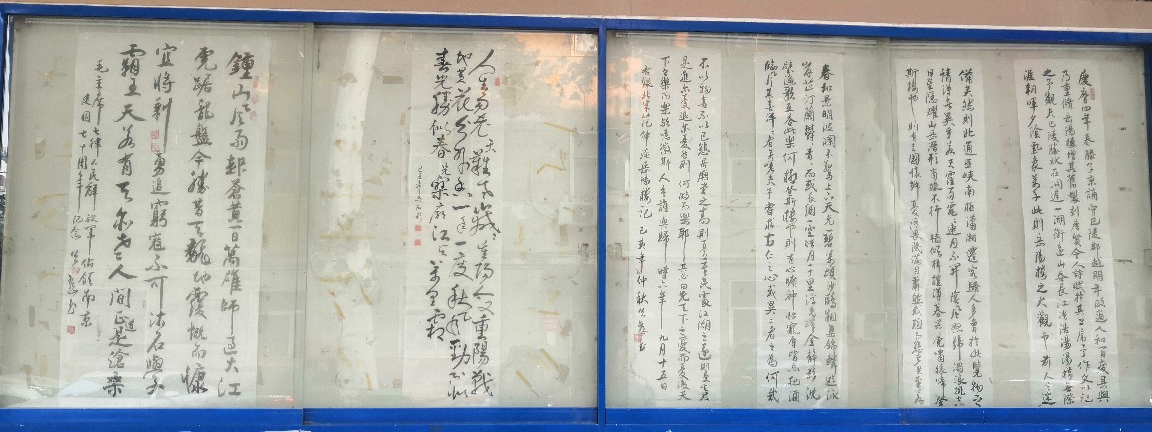 慶曆四年春滕子京謫守巴陵郡越明年政通人和百廢具興
乃重修岳陽樓增其舊製刻唐賢今人詩賦於其上屬予作文以記
之予觀夫巴陵勝狀在洞庭一湖銜遠山吞長江浩浩湯湯橫無際
涯朝暉夕陰氣象萬千此則岳陽樓之大觀也前人之述
備矣然則北通巫峽南極瀟湘遷客騷人多會於此覽物之
情得無異乎若夫霪雨霏霏連月不開陰風怒號濁浪排空
日星隱耀山岳潛形商旅不行檣傾楫摧薄暮冥冥虎嘯猿啼登
斯樓也則有去國懷鄉憂讒畏譏滿目蕭然感極而悲者矣
春和景明波瀾不驚上下天光一碧萬頃沙鷗翔集錦鱗遊泳
岸芷汀蘭郁郁青青而或長煙一空皓月千里浮光躍金靜影沉
璧漁歌互答此樂何極登斯樓也則有心曠神怡寵辱皆忘把酒
臨風其喜洋洋者矣嗟夫予嘗求古仁人之心或異二者之為何哉
不以物喜不以己悲居廟堂之高則憂其民處江湖之遠則憂其君
是進亦憂退亦憂然則何時而樂耶其必曰先天下之憂而憂後天
下之樂而樂歟噫微斯人吾誰與歸時六年九月十五日
右錄北宋范仲淹岳陽樓記己亥年仲秋
人生易老天難老歲歲重陽今又重陽戰
地黃花分外香一年一度秋風勁不似
春光勝似春光寥廓江天萬里霜
鍾山风雨起蒼黃百萬雄師過大江
虎踞龍盤今勝昔天翻地覆慨而慷
宜將剩勇追窮寇不可沽名學
霸王天若有情天亦老人間正道是滄桑
毛主席七律人民解放軍佔領南京
建国七十周年紀念